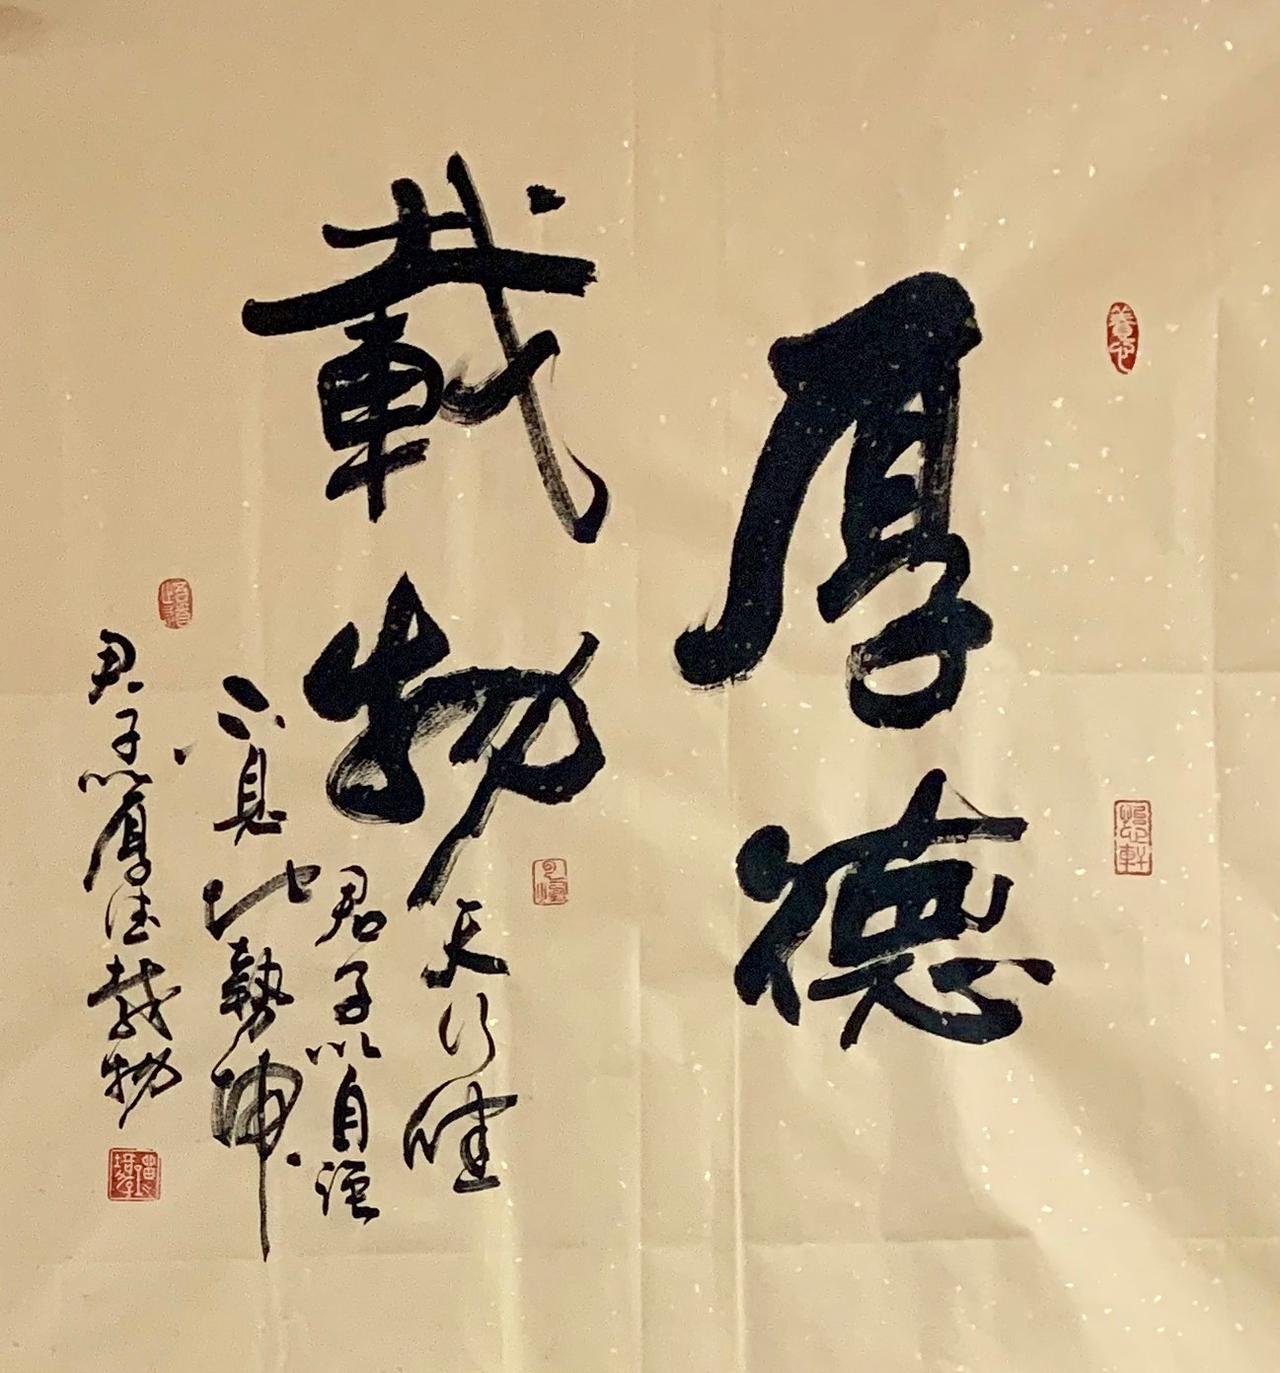 厚德
載物
天行健
君子以自强
不息地勢坤
君子以厚德載物
養心